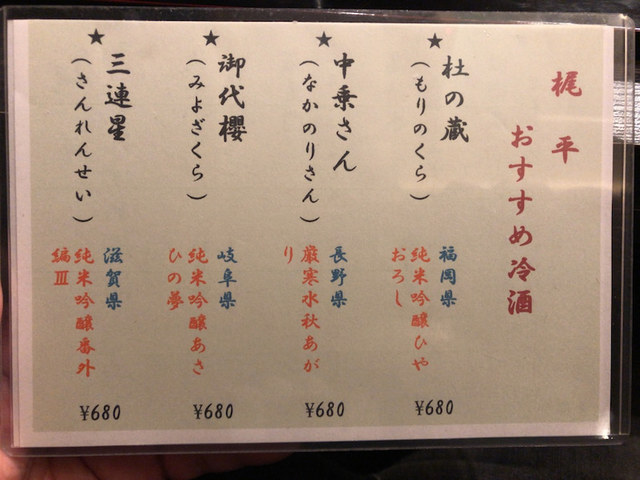 梶平
おすすめ冷酒
★
杜の蔵
(もりのくら)
福岡県
純米吟醸ひや
おろし
¥680
★
中乗さん
(なかのりさん)
長野県
厳寒水秋あが
り
¥680
★
御代櫻
(みよざくら)
岐阜県
純米吟醸あさ
ひの夢
¥680
★
三連星
(さんれんせい)
滋賀県
純米吟醸番外
編Ⅲ
¥680